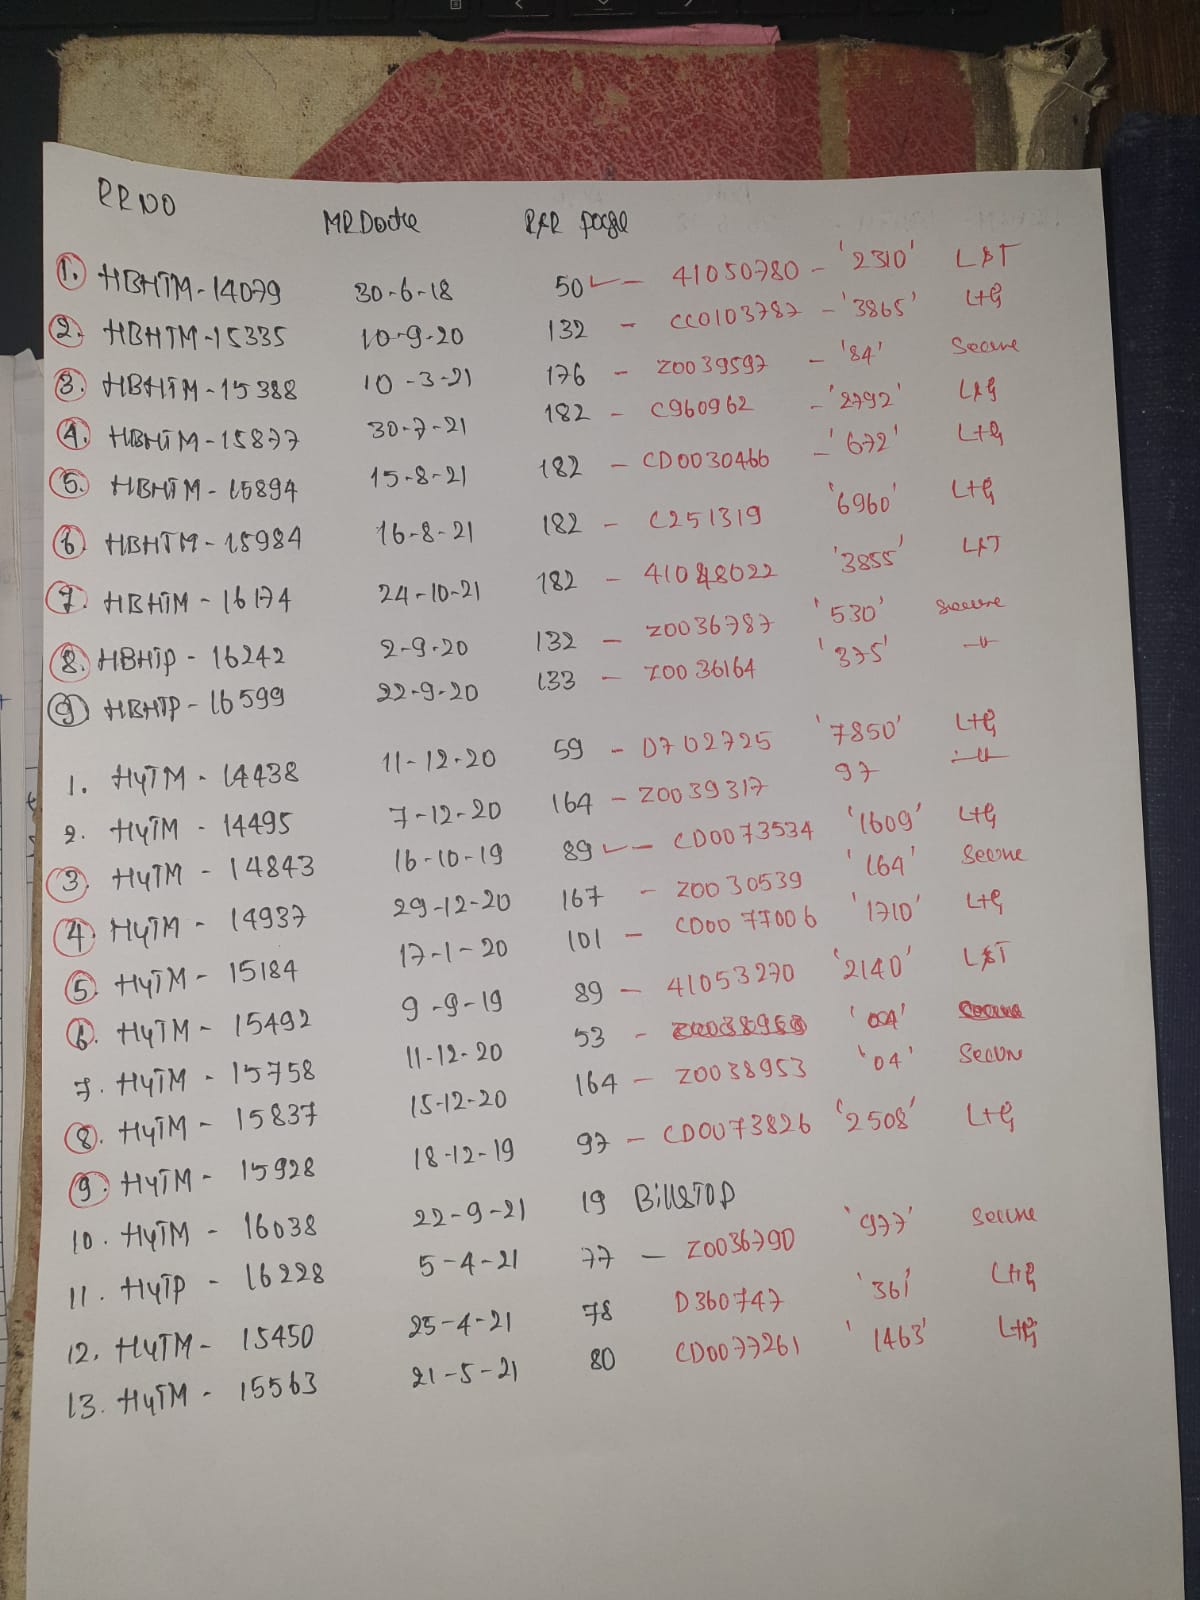 RRNO MRDate R&R page
1. HBHTM-14079 30-6-18 50 ✓ - 41050780 - '2310' L&T
2. HBHTM-15335 10-9-20 132 - CC0103787 - '3865' L+G
3. HBHTM-15388 10-3-21 176 - Z0039597 - '84' Secure
4. HBHTM-15877 30-7-21 182 - C960962 - '2792' L&G
5. HBHTM-15894 15-8-21 182 - CD0030466 - '672' L+G
6. HBHTM-15984 16-8-21 182 - C251319 '6960' L+G
7. HBHTM-16174 24-10-21 182 - 41048022 '3855' L&T
8. HBHTP-16242 2-9-20 132 - Z0036787 '530' Secure
9. HBHTP-16599 22-9-20 133 - Z0036164 '375' -〃-
1. HYTM-14438 11-12-20 59 - D702725 '7850' L+G
2. HYTM-14495 7-12-20 164 - Z0039317 97 -〃-
3. HYTM-14843 16-10-19 89 ✓ - CD0073534 '1609' L+G
4. HYTM-14937 29-12-20 167 - Z0030539 '164' Secure
5. HYTM-15184 17-1-20 101 - CD0077006 '1710' L+G
6. HYTM-15492 9-9-19 89 - 41053270 '2140' L&T
7. HYTM-15758 11-12-20 53 -
8. HYTM-15837 15-12-20 164 - Z0038953 '04' Secure
9. HYTM-15928 18-12-19 97 - CD0073826 '2508' L+G
10. HYTM-16038 22-9-21 19 BillSTOP
11. HYTP-16228 5-4-21 77 - Z0036790 '977' Secure
12. HYTM-15450 25-4-21 78 D360747 '361' L+G
13. HYTM-15563 21-5-21 80 CD0077261 '1463' L+G